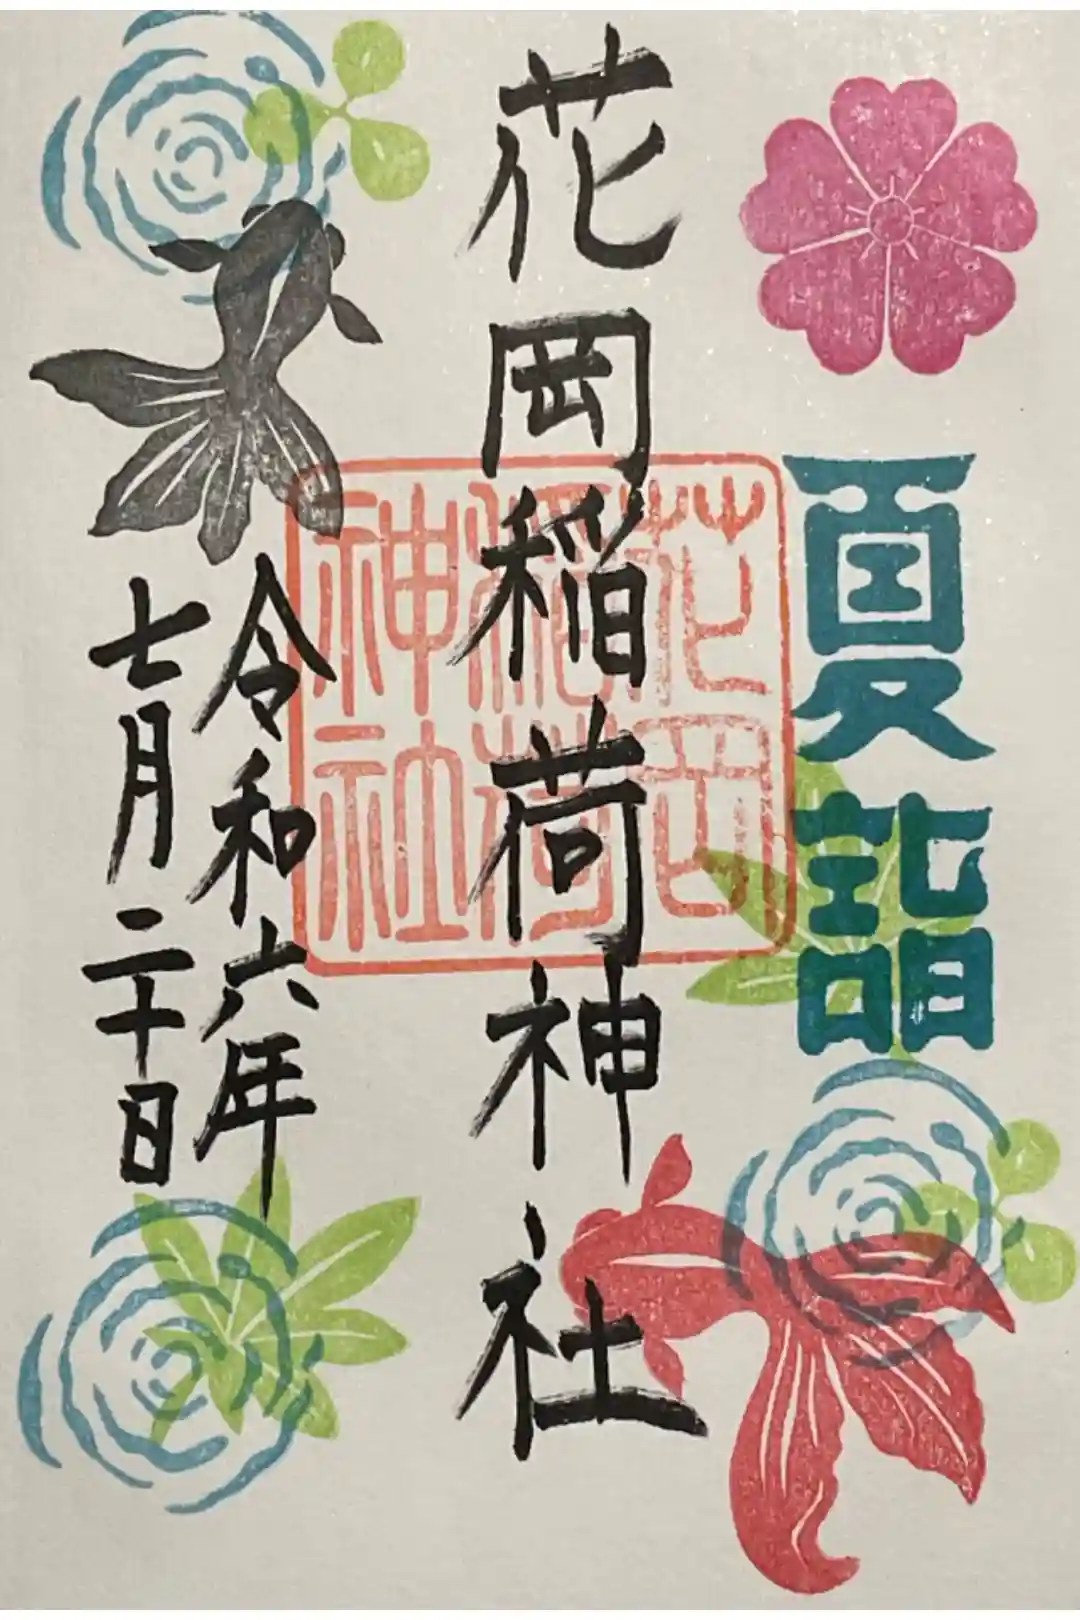 夏詣
花岡稲荷神社
花岡
稲荷
神社
令和六年
七月二十日